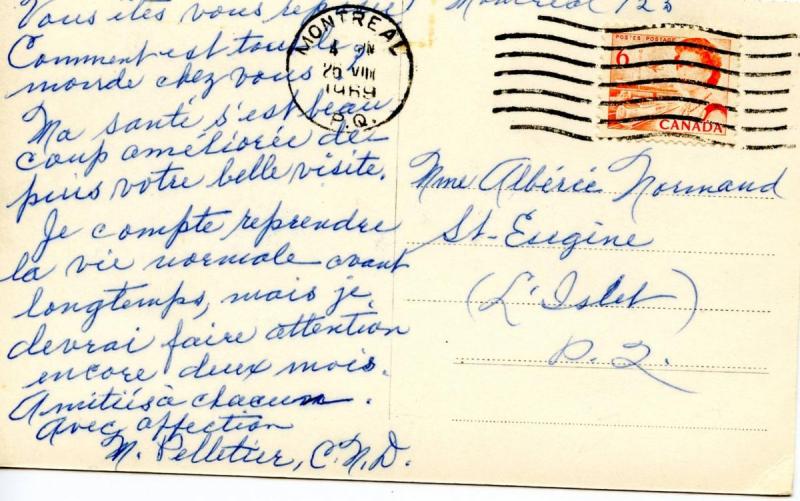 Vous êtes vous reposée
Comment est tout le
monde chez vous?
Ma santé s'est beau
coup améliorée de-
puis votre belle visite.
Je compte reprendre
la vie normale avant
longtemps, mais je
devrai faire attention
encore deux mois.
Amitiés à chacun.
Avec affection
M. Pelletier, C.N.D.
Montréal 123
MONTREAL
PM
VIII
1969
P.Q.
POSTES POSTAGE
6
CANADA
Mme Albérie Normand
St-Eugène
(L'Islet)
P.Q.